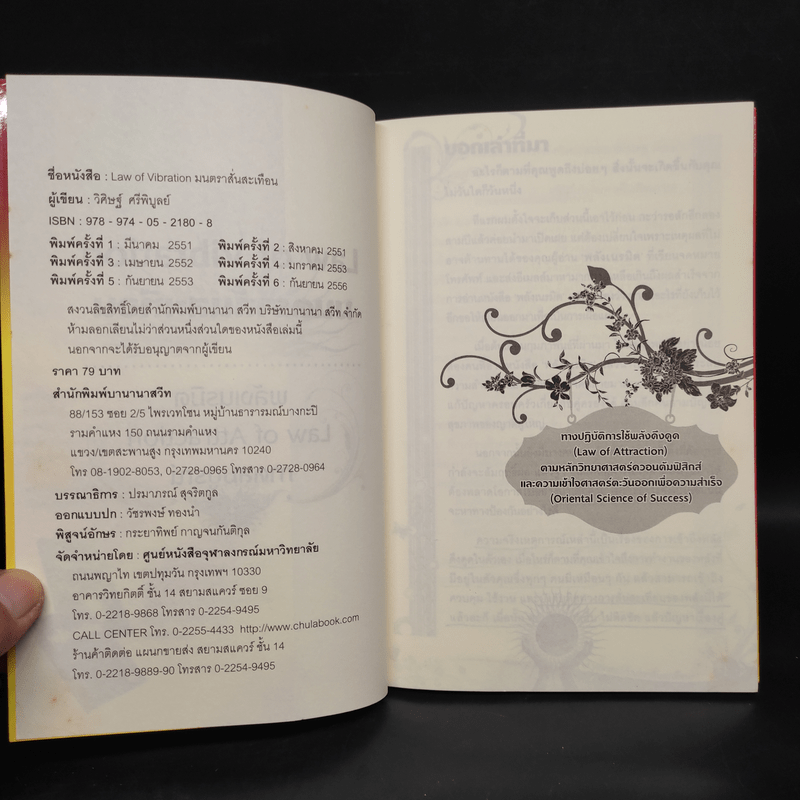 ชื่อหนังสือ : Law of Vibration มนตราสั่นสะเทือน
ผู้เขียน : วิศิษฐ์ ศรีพิบูลย์
ISBN : 978 - 974 - 05 - 2180 - 8
พิมพ์ครั้งที่ 1 : มีนาคม 2551 พิมพ์ครั้งที่ 2 : สิงหาคม 2551
พิมพ์ครั้งที่ 3 : เมษายน 2552 พิมพ์ครั้งที่ 4 : มกราคม 2553
พิมพ์ครั้งที่ 5 : กันยายน 2553 พิมพ์ครั้งที่ 6 : กันยายน 2556
สงวนลิขสิทธิ์โดยสำนักพิมพ์บานานา สวีท บริษัทบานานา สวีท จำกัด
ห้ามลอกเลียนไม่ว่าส่วนหนึ่งส่วนใดของหนังสือเล่มนี้
นอกจากจะได้รับอนุญาตจากผู้เขียน
ราคา 79 บาท
สำนักพิมพ์บานานาสวีท
88/153 ซอย 2/5 ไพรเวทโซน หมู่บ้านธารารมณ์บางกะปิ
รามคำแหง 150 ถนนรามคำแหง
แขวง/เขตสะพานสูง กรุงเทพมหานคร 10240
โทร 08-1902-8053, 0-2728-0965 โทรสาร 0-2728-0964
บรรณาธิการ : ปรมาภรณ์ สุจริตกูล
ออกแบบปก : วัชรพงษ์ ทองนำ
พิสูจน์อักษร : กระยาทิพย์ กาญจนกันติกุล
จัดจำหน่ายโดย : ศูนย์หนังสือจุฬาลงกรณ์มหาวิทยาลัย
ถนนพญาไท เขตปทุมวัน กรุงเทพฯ 10330
อาคารวิทยกิตติ์ ชั้น 14 สยามสแควร์ ซอย 9
โทร. 0-2218-9868 โทรสาร 0-2254-9495
CALL CENTER โทร. 0-2255-4433 http://www.chulabook.com
ร้านค้าติดต่อ แผนกขายส่ง สยามสแควร์ ชั้น 14
โทร. 0-2218-9889-90 โทรสาร 0-2254-9495
ทางปฏิบัติการใช้พลังดึงดูด
(Law of Attraction)
ตามหลักวิทยาศาสตร์ควอนตัมฟิสิกส์
และความเข้าใจศาสตร์ตะวันออกเพื่อความสำเร็จ
(Oriental Science of Success)